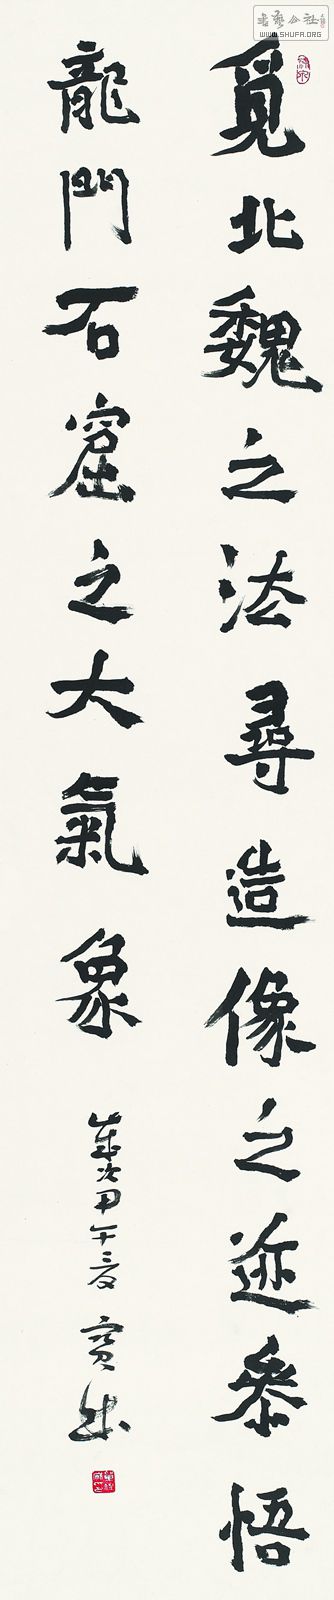 書藝公社
WWW.SHUFA.ORG
覓北魏之法尋造像之迹參悟
龍門石窟之大氣象
歲次甲午